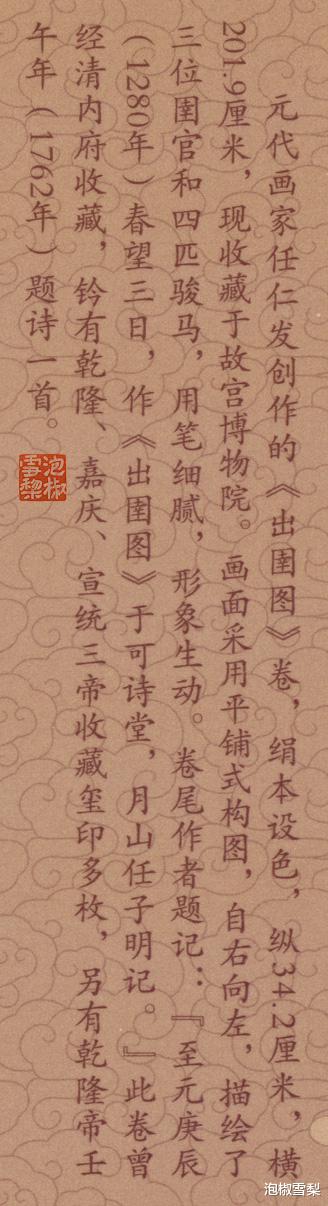 元代画家任仁发创作的《出圉图》卷，绢本设色，纵34.2厘米，横
201.9厘米，现收藏于故宫博物院。画面采用平铺式构图，自右向左，描绘了
三位圉官和四匹骏马，用笔细腻，形象生动。卷尾作者题记：『至元庚辰
（1280年）春望三日，作《出圉图》于可诗堂，月山任子明记。』此卷曾
经清内府收藏，钤有乾隆、嘉庆、宣统三帝收藏玺印多枚，另有乾隆帝壬
午年（1762年）题诗一首。
泡椒雪梨
泡椒雪梨